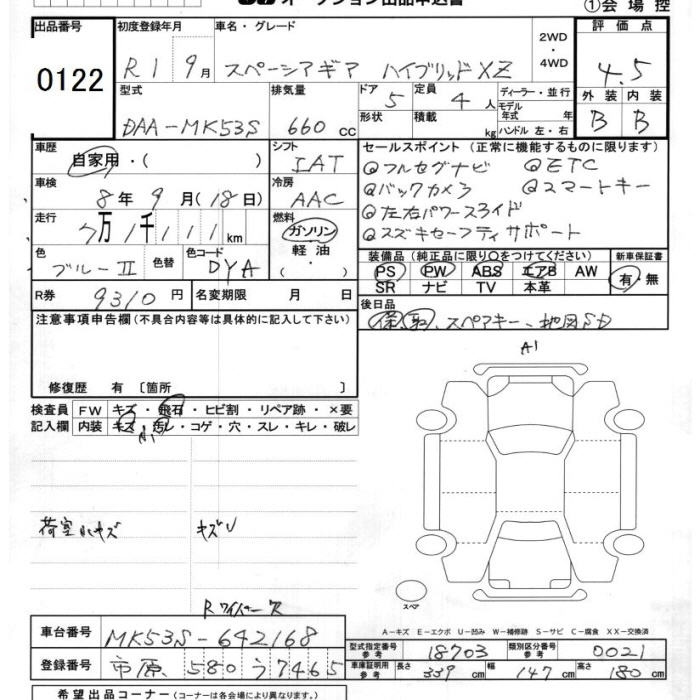 オークション出品申込書
①会場控
出品番号
0122
初度登録年月
R1 9月
車名・グレード
スペーシアギア ハイブリッドXZ
2WD
・
4WD
評価点
4.5
外装 内装
B B
型式
DAA-MK53S
排気量
660 cc
ドア
5
定員
4 人
形状
積載
kg
ディーラー・並行
モデル
年式 年
ハンドル 左・右
車歴
自家用・( )
シフト
IAT
車検
8年 9月(18日)
冷房
AAC
走行
7万1千111km
燃料
ガソリン
・
軽油
・
( )
色
ブルーⅡ
色替
色コード
DYA
セールスポイント (正常に機能するものに限ります)
@フルセグナビ @ETC
@バックカメラ @スマートキー
@左右パワースライド
@スズキセーフティサポート
装備品 (純正品に限り○をつけてください)
PS PW ABS エアB AW
SR ナビ TV 本革
新車保証書
有・無
R券 9310円
名変期限 月 日
後日品
保、取、スペアキー、地図SD
注意事項申告欄 (不具合内容等は具体的に記入して下さい)
修復歴 有 〔箇所 〕
検査員
記入欄
FW キズ・飛石・ヒビ割・リペア跡・×要
内装 キズ・汚レ・コゲ・穴・スレ・キレ・破レ
A1
荷室小キズ
キズU
Rワイパー欠
スペア
A−キズ E−エクボ U−凹み W−補修跡 S−サビ C−腐食 XX−交換済
車台番号
MK53S-642168
登録番号
市原 580 う 7465
型式指定番号
参考
18703
類別区分番号
参考
0021
車庫証明用
参考
長さ 339 cm
幅 147 cm
高さ 180 cm
希望出品コーナー (コーナーは各会場により異なります。)